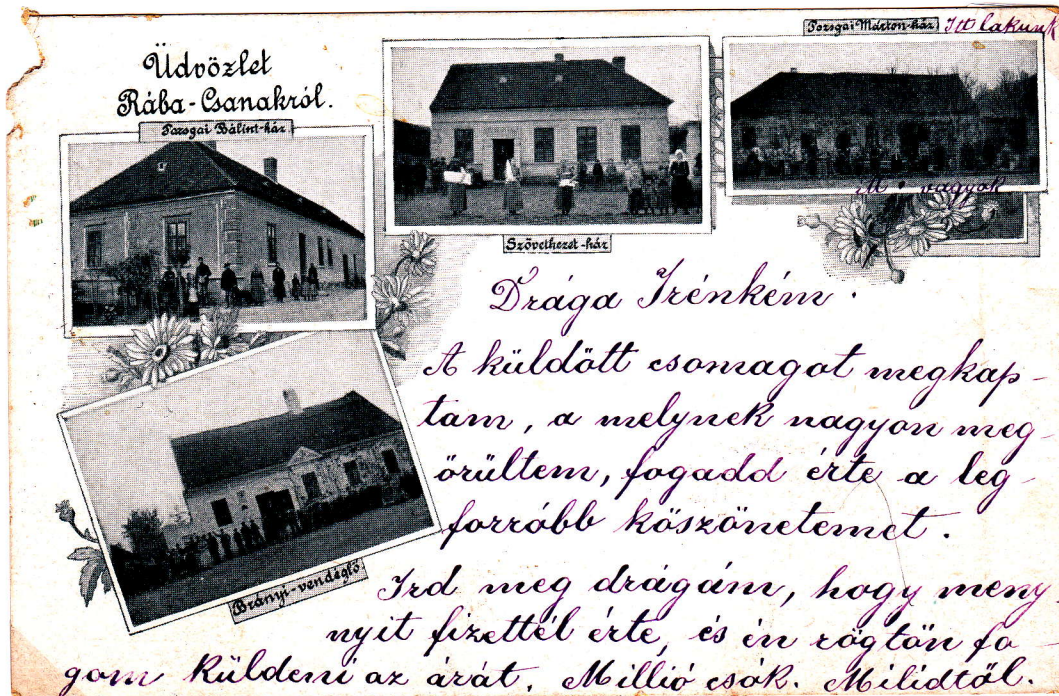 Üdvözlet
Rába-Csanakról.
Pozsgai Bálint-ház
Szövetkezet-ház
Pozsgai Márton-ház Itt lakunk
itt vagyok
Brányi-vendéglő
Drága Irénkém.
A küldött csomagot megkap-
tam, a melynek nagyon meg-
örültem, fogadd érte a leg-
forróbb köszönetemet.
Ird meg drágám, hogy meny
nyit fizettél érte, és én rögtön fo-
gom küldeni az árát. Millió csók. Milidtől.